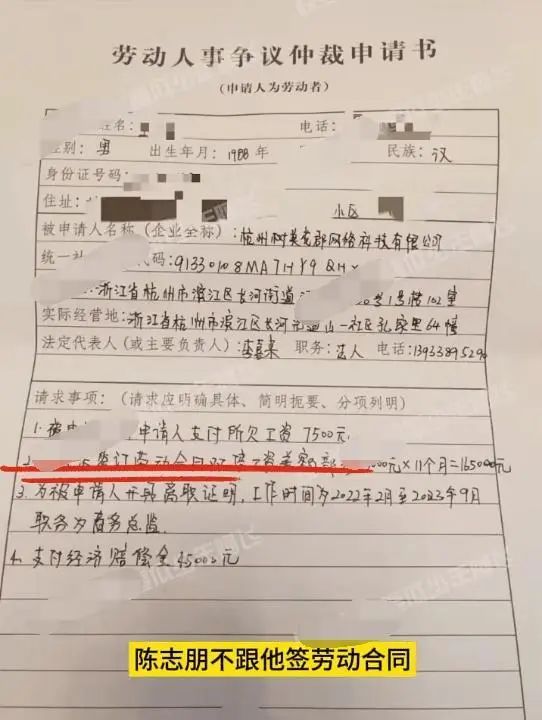 劳动人事争议仲裁申请书
（申请人为劳动者）
姓名： 电话：
性别：男 出生年月：1988年 民族：汉
身份证号码：
住址： 小区
被申请人名称（企业全称）：杭州树英老郡网络科技有限公司
统一社 代码：91330108MA7HY9QHX
浙江省杭州市滨江区长河街道 1号楼102室
实际经营地：浙江省杭州市滨江区长河 山一社区孔家里64幢
法定代表人（或主要负责人）：李喜来 职务：法人 电话：1393389529
请求事项：（请求应明确具体、简明扼要、分项列明）
1.被申 申请人支付所欠工资7500元
2. 签订劳动合同双倍工资差额部 000元×11个月=165000元
3.为被申请人开具离职证明，工作时间为2022年2月至2023年9月
职务为商务总监
4.支付经济赔偿金45000元
陈志朋不跟他签劳动合同